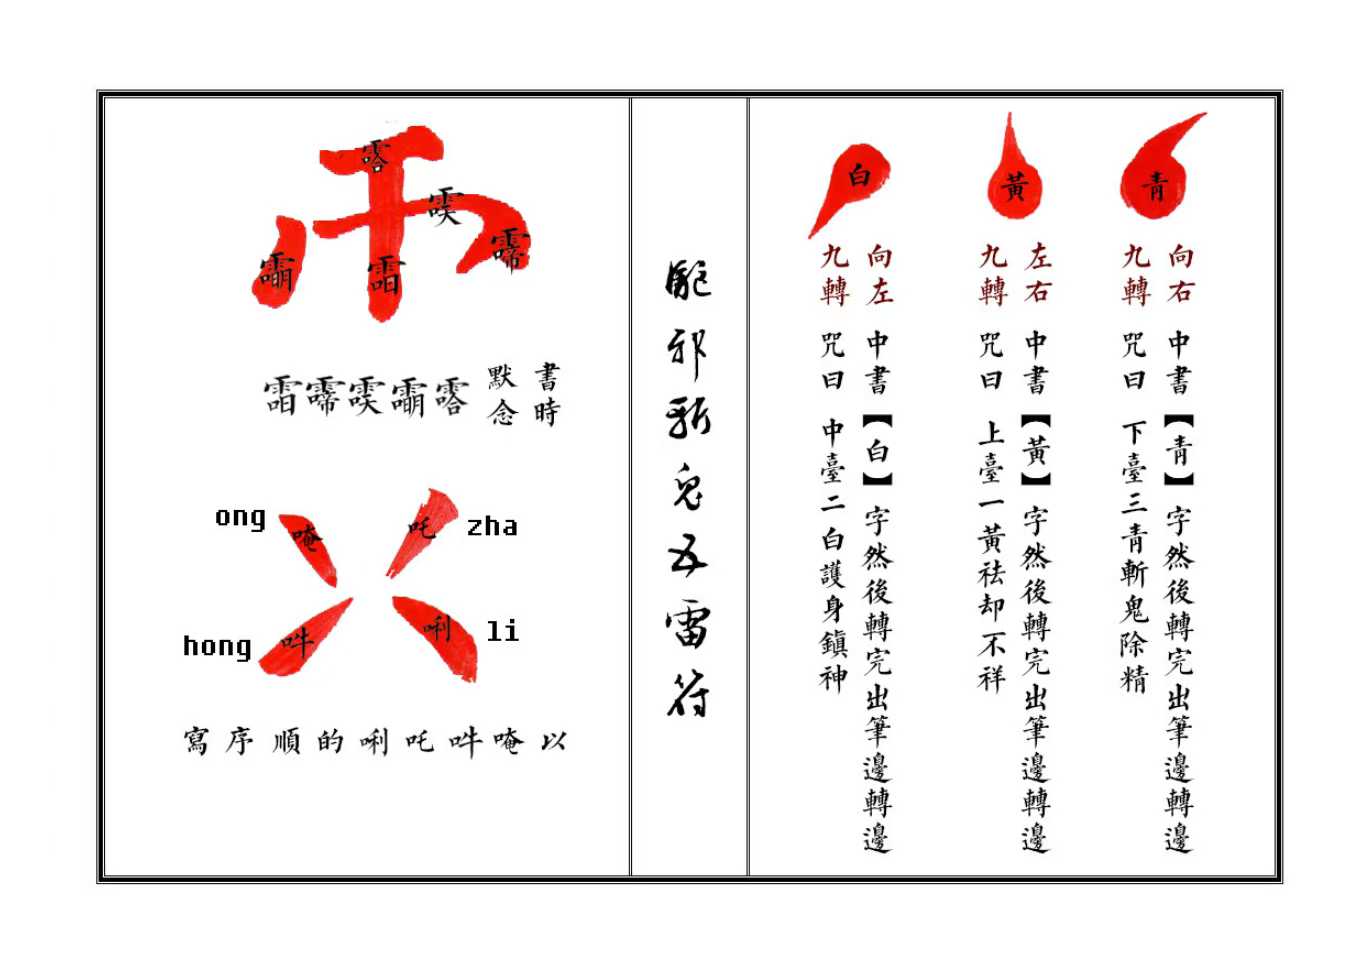 青
向右 中書【青】字然後轉完出筆邊轉邊
九轉 咒曰 下臺三青斬鬼除精
黃
左右 中書【黃】字然後轉完出筆邊轉邊
九轉 咒曰 上臺一黃祛却不祥
白
向左 中書【白】字然後轉完出筆邊轉邊
九轉 咒曰 中臺二白護身鎮神
驅邪斬鬼五雷符
書時
默念
ong 唵
吒 zha
hong 吽
唎 li
以唵吽吒唎的順序寫